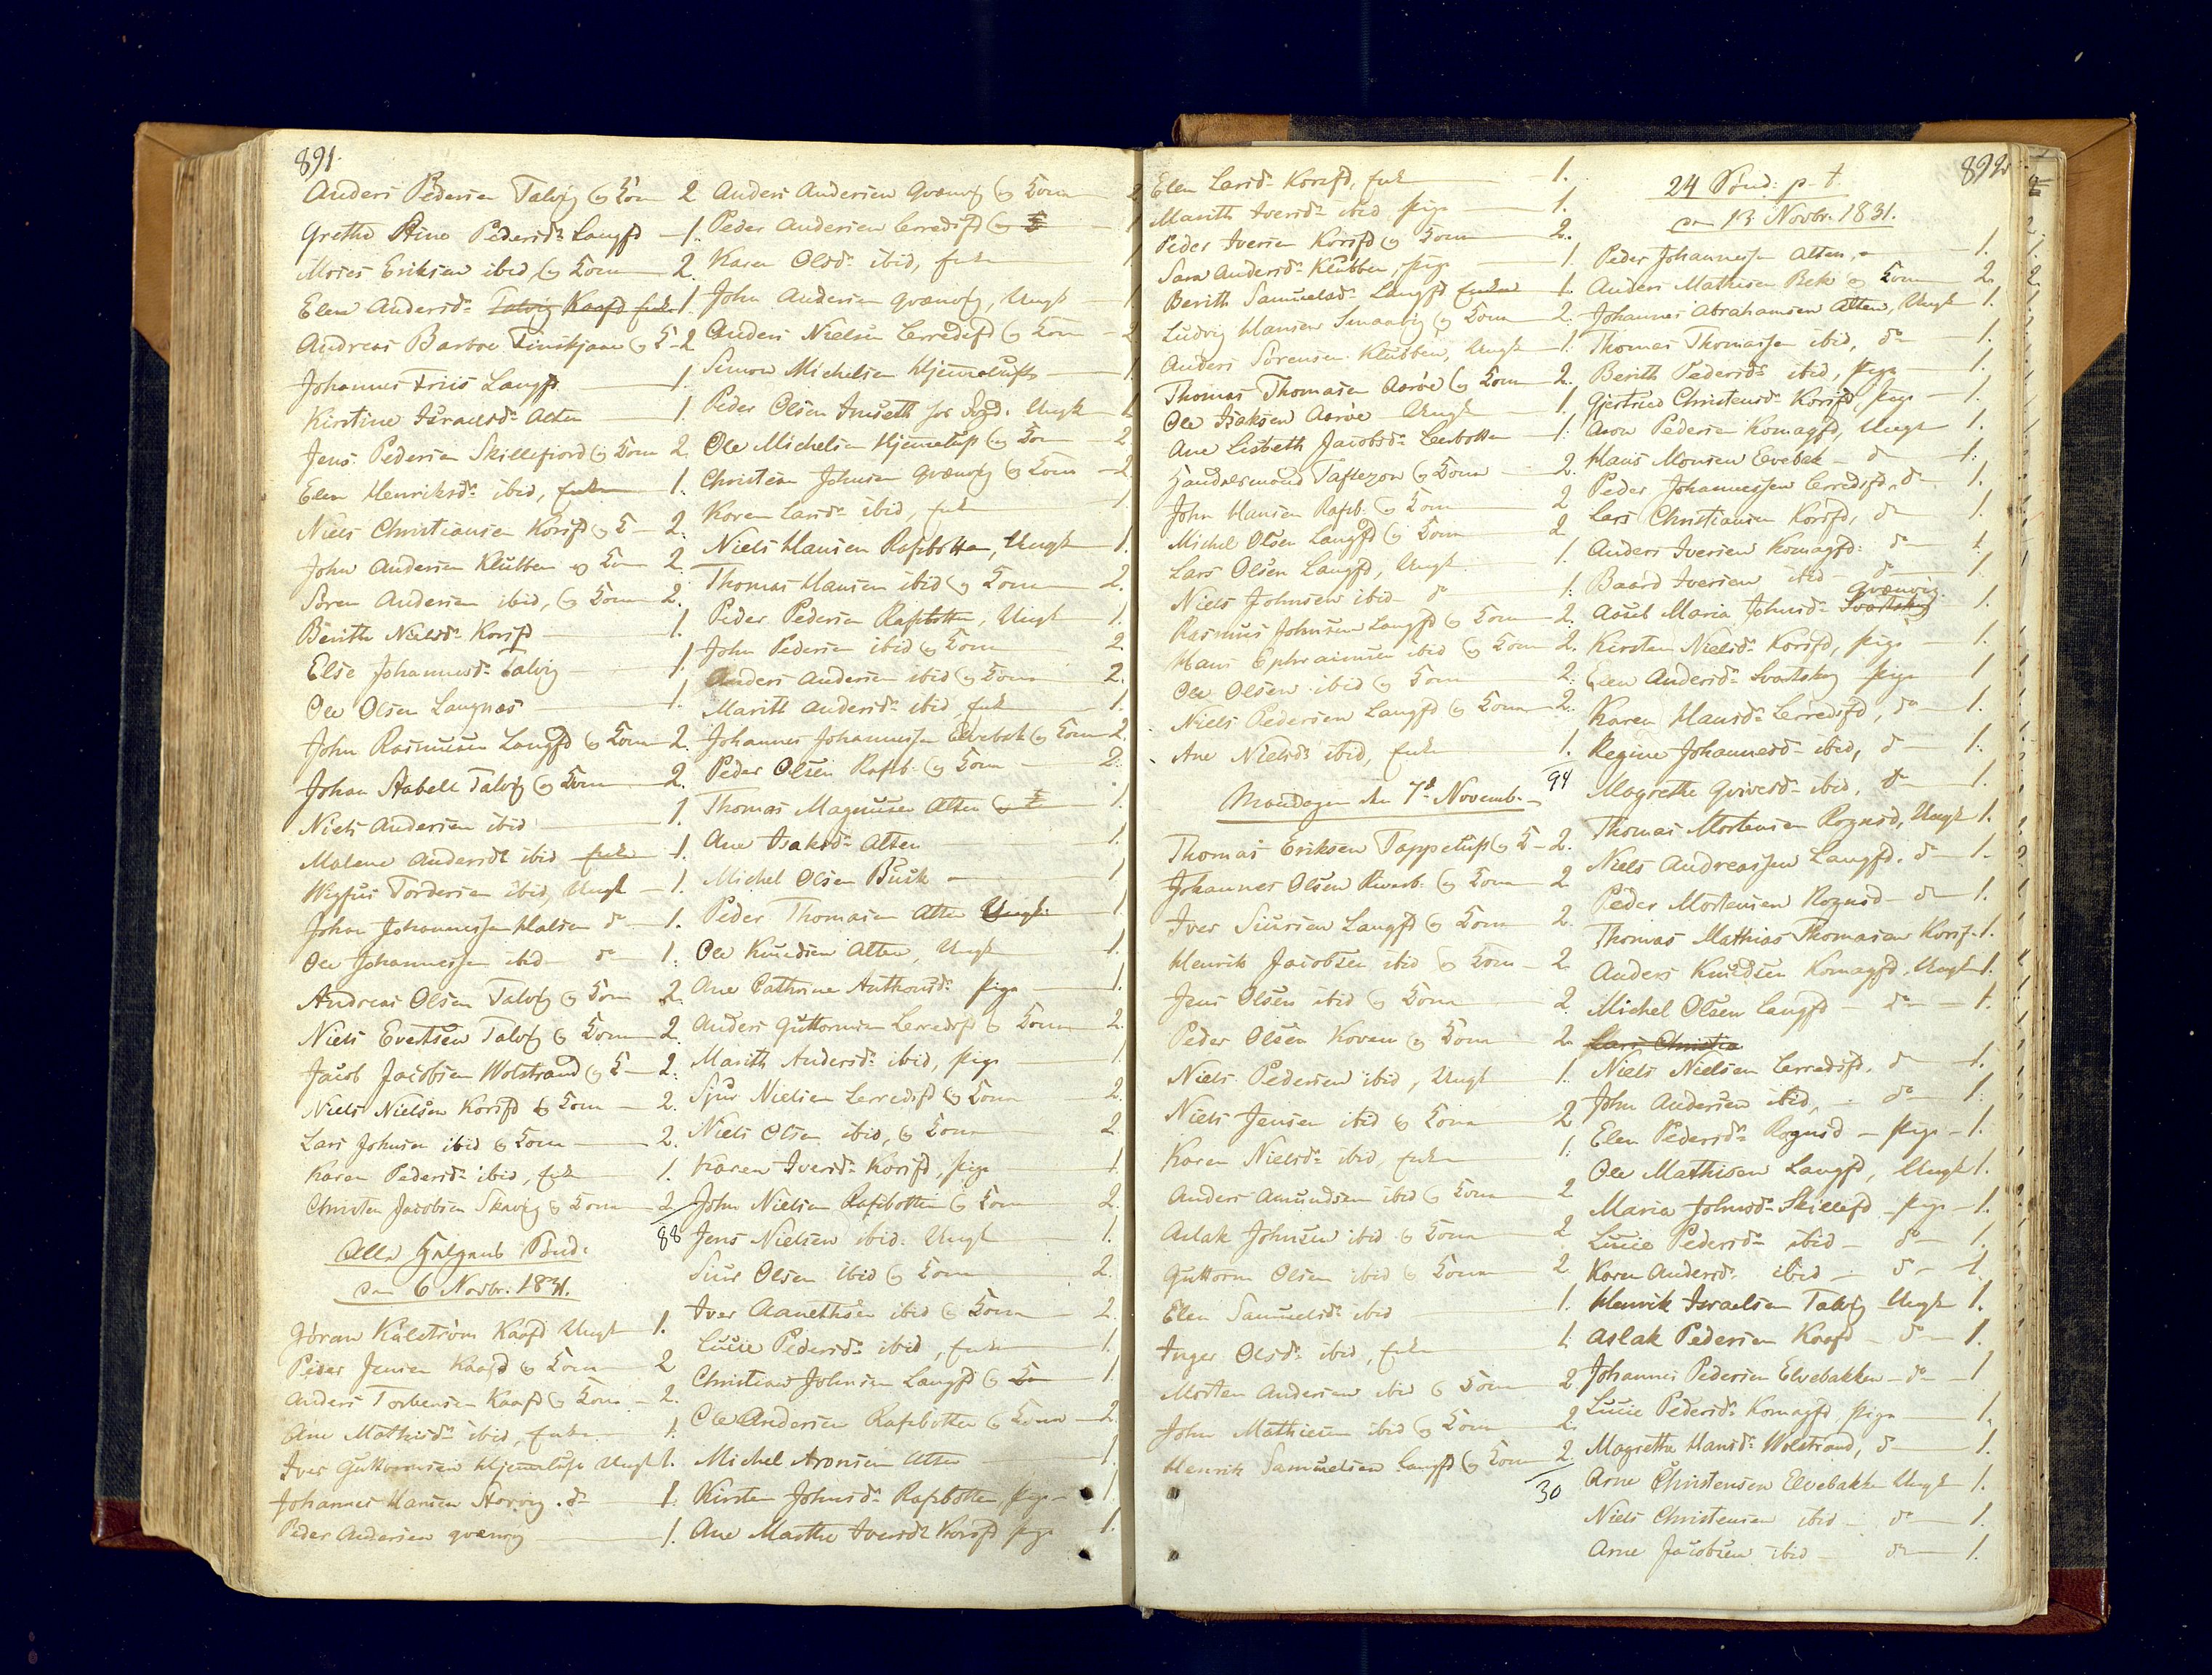 891.
Anders Pedersen Talvig og Kone 2
Grethe Stine Pedersdr Langfd 1.
Moses Eriksen ibid, og Kone 2.
Elen Andersdr Talvig Kaafd Enke 1.
Andreas Barboe Finskjaae og K 2
Johannes Friis Langfd 1.
Kirstine Israelsdr Alten 1.
Jens Pedersen Skillefiord og Kone 2.
Elen Henriksdr ibid, Enke 1.
Niels Christiansen Korsfd og K 2.
John Andersen Klubben og Kone 2.
Søren Andersen ibid, og Kone 2.
Berith Nielsdr Korsfd 1.
Else Johannesdr Talvig 1.
Ole Olsen Langnæs 1.
John Rasmusen Langfd og Kone 2.
Johan Stabell Talvig og Kone 2.
Niels Andersen ibid 1.
Malene Andersdr ibid Enke 1.
Wigfus Tordersen ibid, Ungk 1.
Johan Johannessen Halsen do 1.
Ole Johannessen ibid do 1.
Andreas Olsen Talvig og Kone 2.
Niels Evertsen Talvig og Kone 2.
Jacob Jacobsen Wolstrand og K 2.
Niels Nielsen Korsfd og Kone 2.
Lars Johnsen ibid og Kone 2.
Karen Pedersdr ibid, Enke 1.
Christen Jacobsen Skavig og Kone 2
88
Alle Helgens Sønd:
den 6 Novbr. 1831.
Gøran Kulstrøm Kaafd Ungk 1.
Peder Jensen Kaafd og Kone 2
Anders Torbensen Kaafd og Kone 2.
Ane Mathisdr ibid, Enke 1.
Iver Guttormsen Hjemeluft Ungk 1.
Johannes Hansen Storvig do 1.
Peder Andersen Qvænvig 1.
Anders Andersen Qvænvig og Kone 2
Peder Andersen Lerredsfd og K 1
Karen Olsdr ibid, Enke 1
John Andersen Qvænvig, Ungk 1
Anders Nielsen Lerredsfd og Kone 2
Simon Michelsen Hjemeluft 1
Peder Olsen Ungk 1
Ole Michelsen Hjemeluft og Kone 2
Christian Johnsen Qvænvig og Kone 2
Karen Larsdr ibid, Enke 1
Niels Hansen Rafsbotten, Ungk 1.
Thomas Hansen ibid og Kone 2.
Peder Pedersen Rafsbotten, Ungk 1.
John Pedersen ibid og Kone 2
Anders Andersen ibid og Kone 2.
Marith Andersdr ibid, Enke 1.
Johannes Johannessen Elvebak og Kone 2.
Peder Olsen Rafsb: og Kone 2.
Thomas Magnusen Alten og K 1.
Ane Isaksdr Alten 1.
Michel Olsen Busk 1
Peder Thomasen Alten Ungk: 1
Ole Knudsen Alten, Ungk 1.
Ane Cathrine Anthonsdr Pige 1.
Anders Guttormsen Lerredsfd og Kone 2.
Marith Andersdr ibid, Pige 1
Sjur Nielsen Lerredsfd og Kone 2.
Niels Olsen ibid, og Kone 2
Karen Iversdr Korsfd, Pige 1.
John Nielsen Rafsbotten og Kone 2.
Jens Nielsen ibid: Ungk 1.
Siur Olsen ibid og Kone 2.
Iver Aanethsen ibid og Kone 2.
Lucie Pedersdr ibid, Enke 1.
Christian Johnsen Langfd og Kone 1.
Ole Andersen Rafsbotten og Kone 2.
Michel Aronsen Alten 1.
Kirsten Johnsdr Rafsbotten Pige 1
Ane Marthe Iversdr Korsfd Pige 1.
892
Elen Larsdr Korsfd, Enke 1.
Marith Iversdr ibid Pige 1.
Peder Iversen Korsfd og Kone 2.
Sara Andersdr Klubben, Pige 1.
Berith Samuelsdr Langfd Enke 1.
Ludvig Hansen Smaavig og Kone 2.
Anders Sørensen Klubben, Ungk 1.
Thomas Thomasen Aarøe og Kone 2.
Ole Isaksen Aarøe Ungk 1
Ane Lisbeth Jacobsdr Leerbotten 1.
Handelsmand Taftezon og Kone 2.
John Hansen Rafsb. og Kone 2
Michel Olsen Langfd og Kone 2
Lars Olsen Langfd, Ungk 1.
Niels Johnsen ibid do 1.
Rasmus Johnsen Langfd og Kone 2.
Hans Ephraimsen ibid og Kone 2.
Ole Olsen ibid og Kone 2.
Niels Pedersen Langfd og Kone 2.
Ane Nielsdr ibid, Enke 1.
94
Mandagen den 7de Novemb.
Thomas Eriksen Tappeluft og K 2.
Johannes Olsen og Kone 2
Iver Siursen Langfd og Kone 2.
Henrik Jacobsen ibid og Kone 2.
Jens Olsen ibid og Kone 2
Peder Olsen Koven og Kone 2.
Niels Pedersen ibid, Ungk 1.
Niels Jensen ibid og Kone 2
Karen Nielsdr ibid, Enke 1.
Anders Amundsen ibid og Kone 2
Aslak Johnsen ibid og Kone 2
Guttorm Olsen ibid og Kone 2.
Elen Samuelsdr ibid 1.
Inger Olsdr ibid, Enke 1.
Morten Andersen ibid og Kone 2
John Mathiesen ibid og Kone 2.
Henrik Samuelsen Langfd og Kone 2.
30
24 Sønd: p. t.
den 13 Novbr. 1831.
Peder Johannessen Alten, 1.
Anders Mathisen Bek og Kone 2.
Johannes Abrahamsen Alten, Ungk 1.
Thomas Thomassen ibid, do 1.
Berith Pedersdr ibid, Pige 1.
Gjertrud Christensdr Korsfd, Pige 1.
Aron Pedersen Komagfd, Ungk 1.
Hans Monsen Elvebak do 1.
Peder Johannessen Lerredsfd, do 1.
Lars Christiansen Korsfd, do 1.
Anders Iversen Komagfd: do 1.
Baard Iversen ibid do 1
Qvænvig.
Maria Johnsdr Svartskog 1.
Kirsten Nielsdr Korsfd, Pige 1.
Elen Andersdr Svartskog Pige 1
Karen Hansdr Lerredsfd, do 1.
Regine Johannesdr ibid, do 1.
Magrethe ibid, do 1.
Thomas Mortensen Rognsd, Ungk 1.
Niels Andreassen Langfd. do 1.
Peder Mortensen Rognsd do 1.
Thomas Mathias Thomasen Korsf. 1.
Anders Knudsen Komagfd. Ungk 1.
Michel Olsen Langfd do 1.
Lars Christia
Niels Nielsen Lerredsfd. do 1.
John Andersen ibid, do 1.
Elen Pedersdr Rognsd Pige 1.
Ole Mathisen Langfd, Ungk 1.
Maria Johnsdr Skillefd Pige 1.
Lucie Pedersdr ibid do 1.
Karen Andersdr ibid do 1.
Henrik Israelsen Talvig Ungk 1.
Aslak Pedersen Kaafd do 1.
Johannes Pedersen Elvebakken do 1
Lucie Pedersdr Komagfd Pige 1.
Magrethe Hansdr Wolstrand, do 1.
Arne Christensen Elvebakke Ungk 1.
Niels Christensen ibid do 1.
Arne Jacobsen ibid do 1.